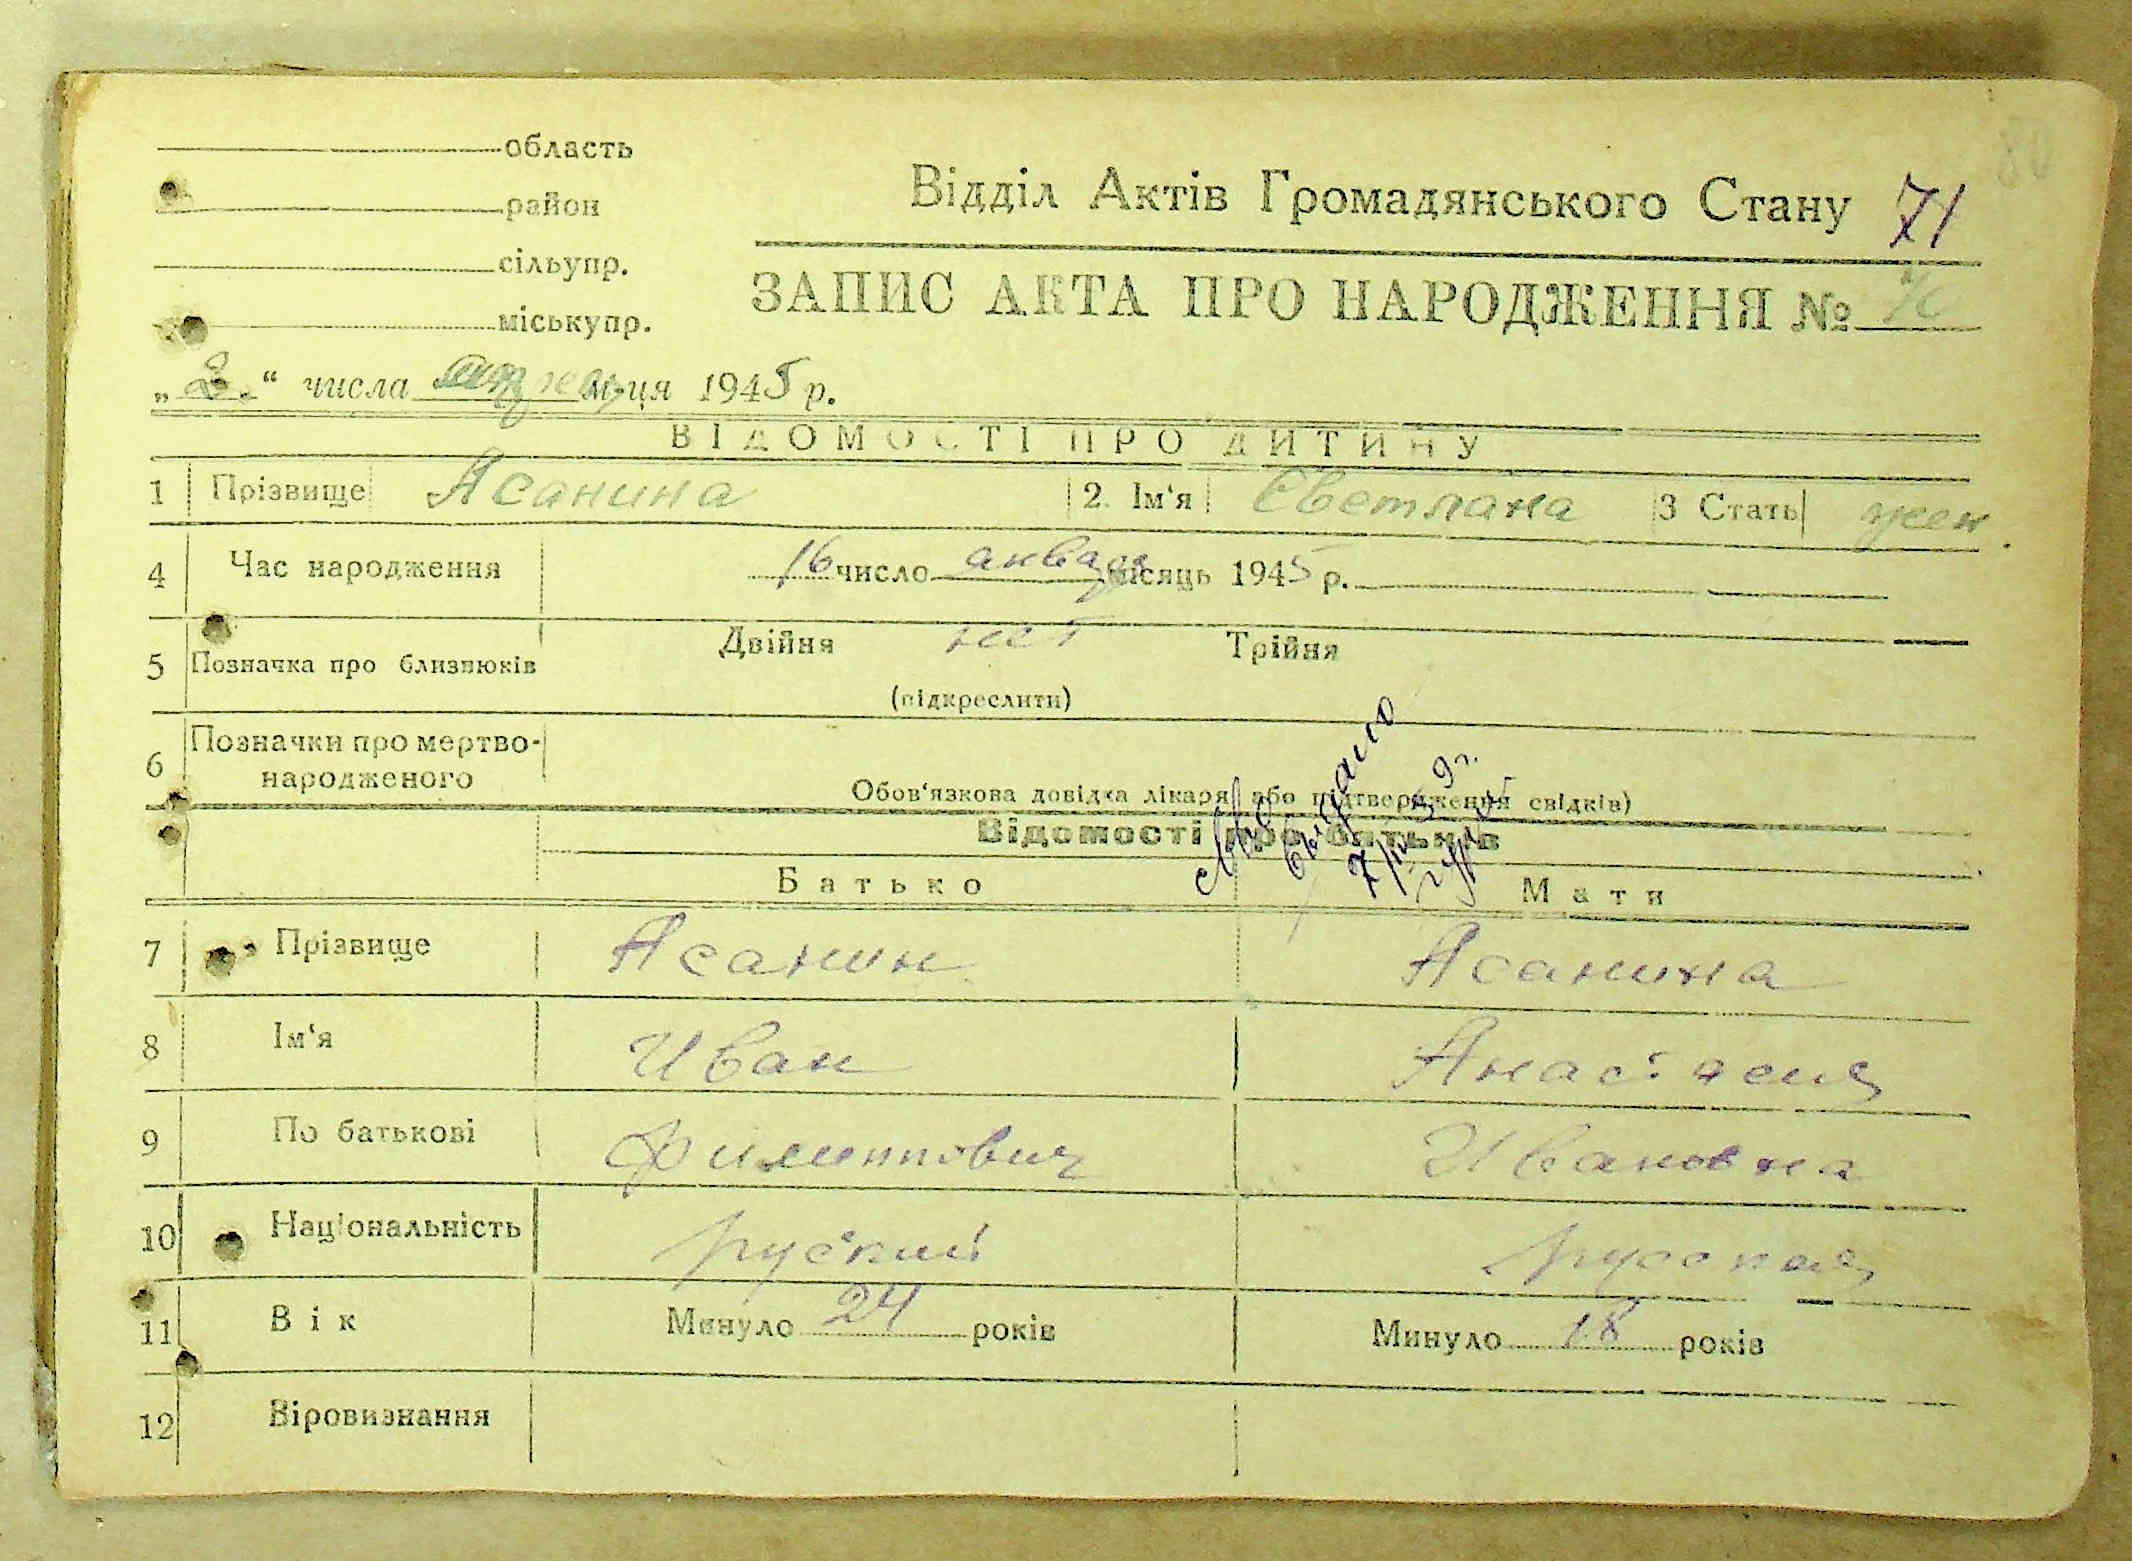 область
район
сільупр.
міськупр.
Відділ Актів Громадянського Стану 71
ЗАПИС АКТА ПРО НАРОДЖЕННЯ №
„2.“ числа м-ця 1945 р.
ВІДОМОСТІ ПРО ДИТИНУ
1 Прізвище Асанина 2. Ім‘я Светлана 3 Стать жен.
4 Час народження 16 число января місяць 1945 р.
5 Позначка про близнюків Двійня нет Трійня
(підкреслити)
6 Позначки про мертво-
народженого
Обов‘язкова довідка лікаря або підтвердження свідків)
Відомості про батьків
выдано
Батько Мати
7 Прізвище Асанин Асанина
8 Ім‘я Иван Анастасия
9 По батькові Филиппович Ивановна
10 Національність руский русская
11 Вік Минуло 24 років Минуло 18 років
12 Віровизнання